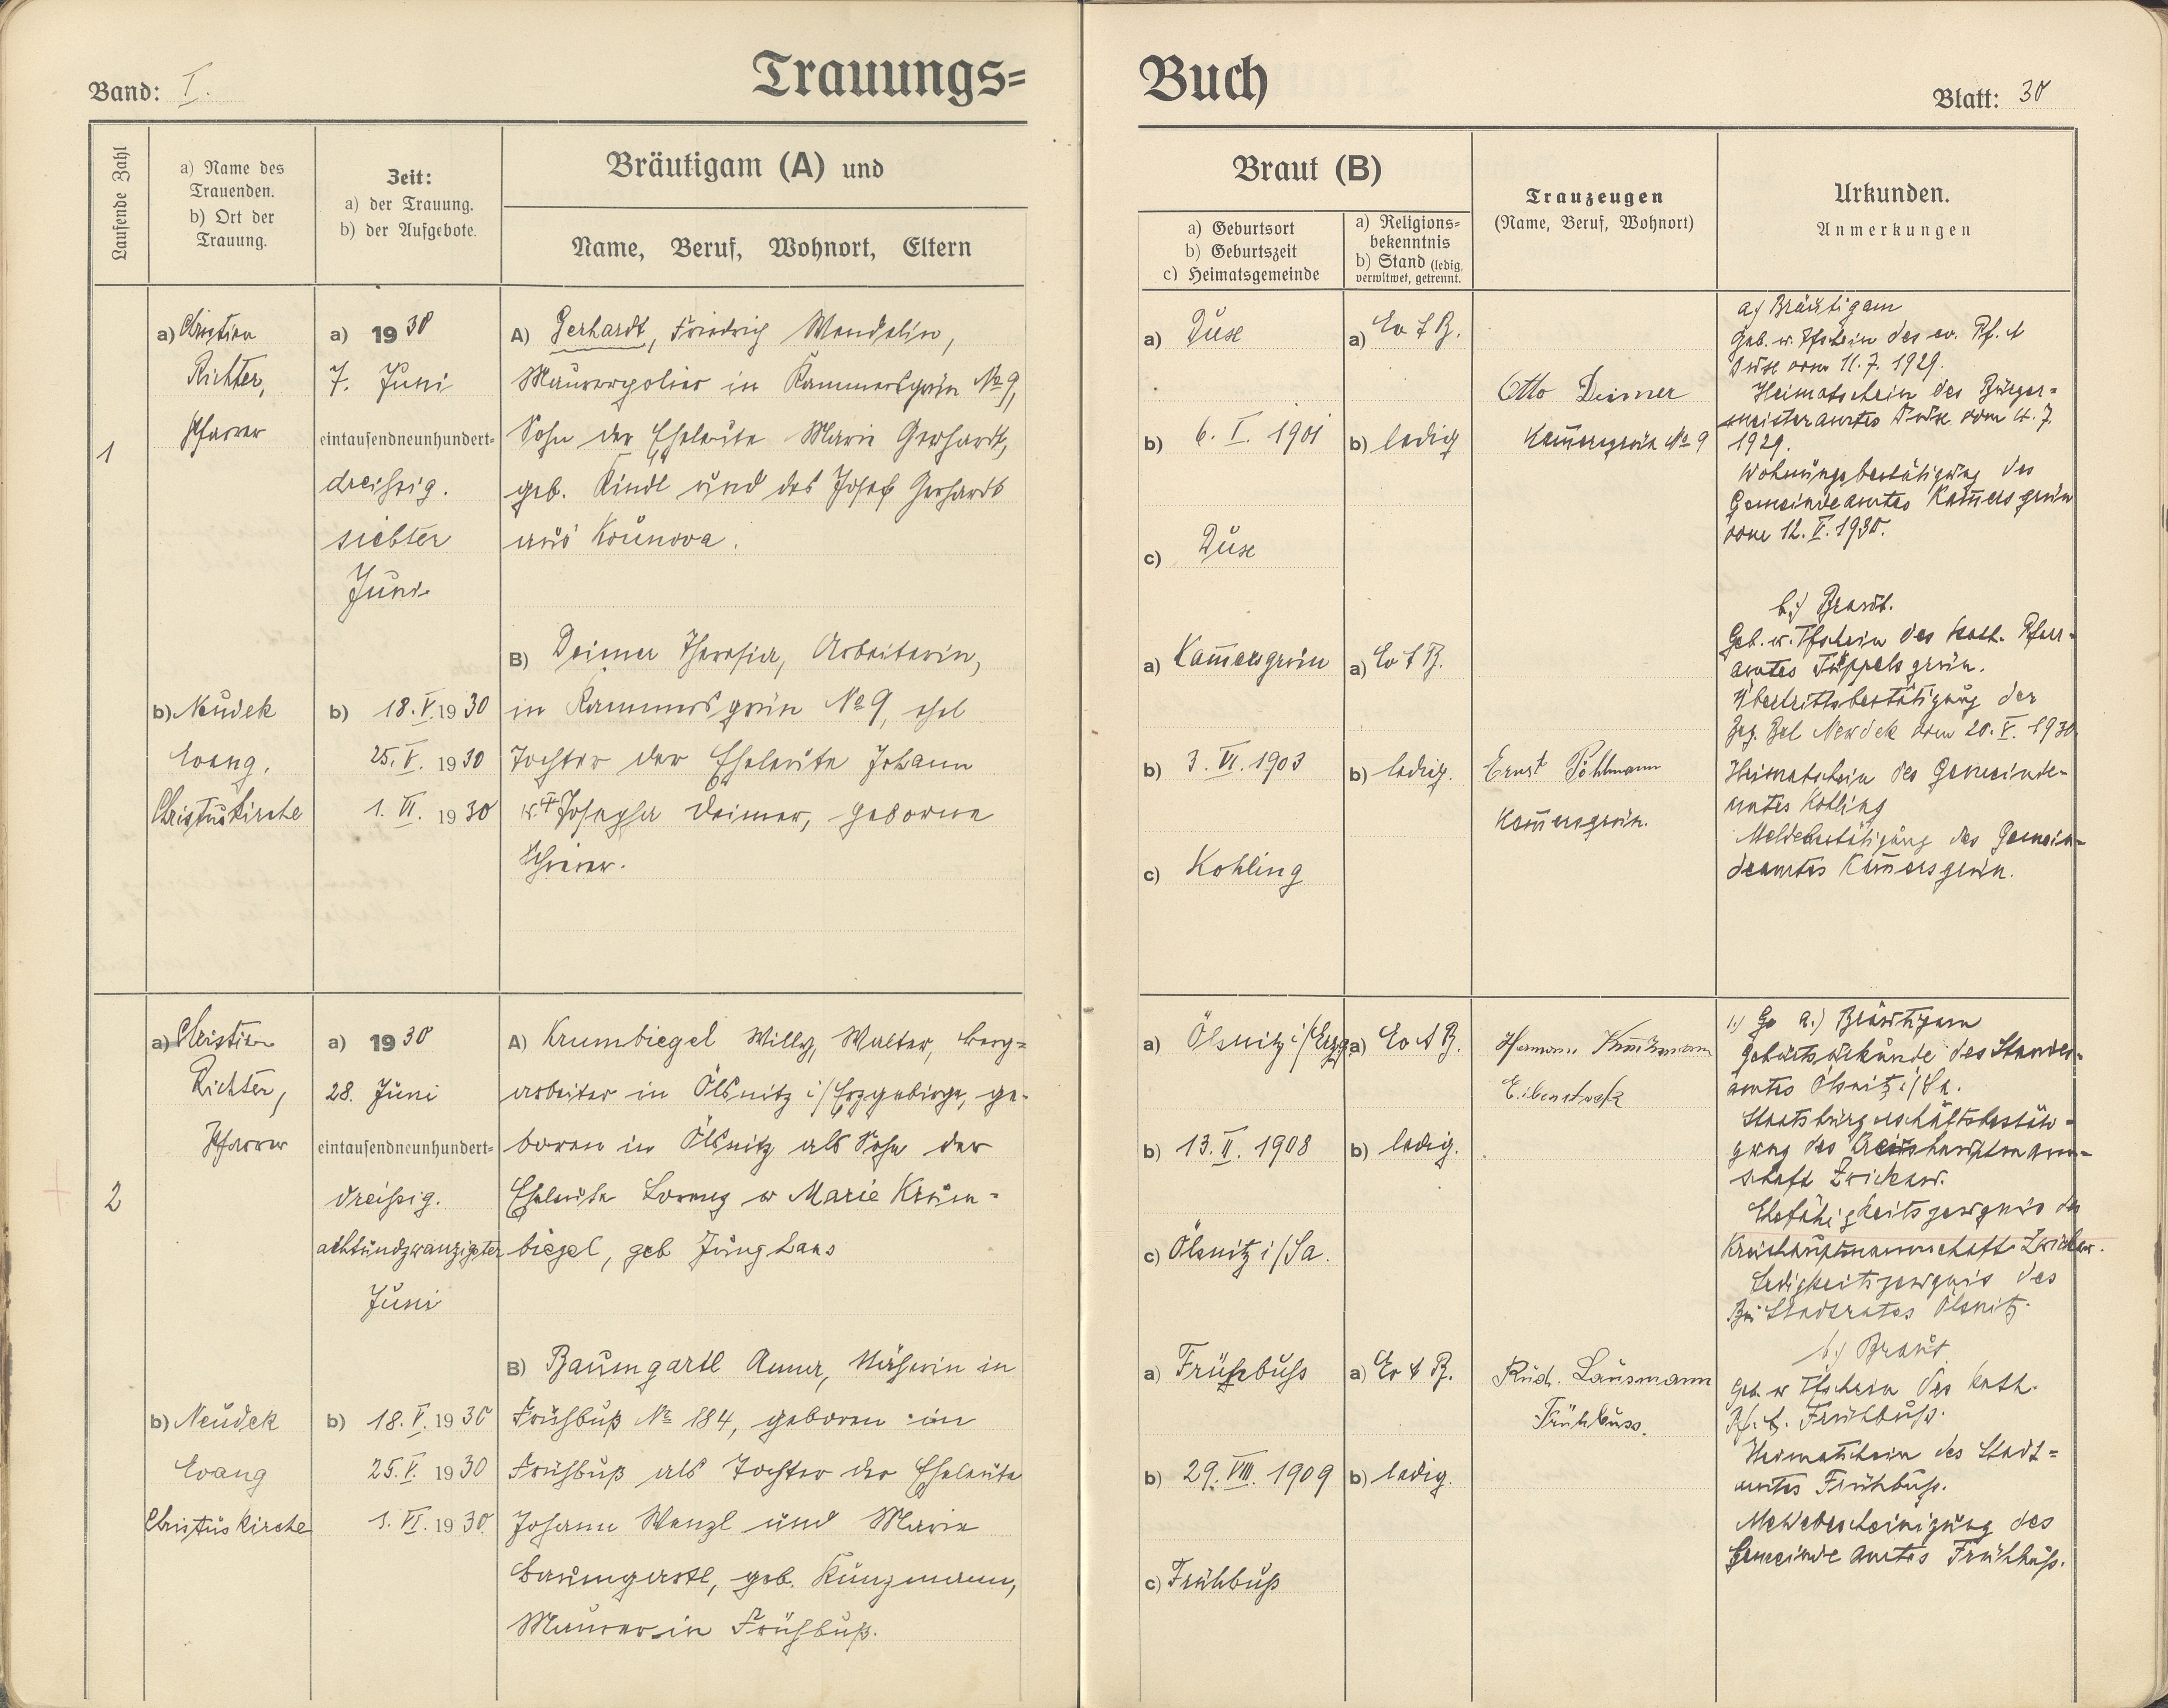 Band: I.
Trauungs=
Buch
Blatt: 30
Laufende Zahl
a) Name des
Trauenden.
b) Ort der
Trauung.
Zeit:
a) der Trauung.
b) der Aufgebote.
Bräutigam (A) und
Name, Beruf, Wohnort, Eltern
Braut (B)
a) Geburtsort
b) Geburtszeit
c) Heimatsgemeinde
a) Religions=
bekenntnis
b) Stand (ledig,
verwitwet, getrennt.
Trauzeugen
(Name, Beruf, Wohnort)
Urkunden.
Anmerkungen
1
a) Christian
Richter,
Pfarrer
b) Neudek
Evang.
Christuskirche
a) 1930
7. Juni
eintausendneunhundert=
dreißig.
siebter
Juni
b) 18. V. 1930
25. V. 1930
1. VI. 1930
A) Gerhardt, Friedrich Wendelin,
Maurerpolier in Kammersgrün No 9,
Sohn der Eheleute Marie Gerhardt,
geb. Kindl und des Josef Gerhardt
aus Kounova.
B) Deimer Theresia, Arbeiterin,
in Kammersgrün No 9, ehel
Tochter der Eheleute Johann
u. Josepha Deimer, geborne
a) Dux
b) 6. I. 1901
c) Dux
a) Kam̅ersgrün
b) 3. VI. 1903
c) Kohling
a) Ev d B.
b) ledig
a) Ev d B.
b) ledig.
Otto Deimer
Kam̅ersgrün No 9
Ernst Pöhlmann
Kam̅ersgrün.
a) Bräutigam
Geb. u. Tfschein des ev. Pf. A
Dux vom 11. 7. 1929.
Heimatschein des Bürger=
meisteramtes Dux vom 4. 7.
1929.
Wohnungsbestätigung des
Gemeindeamtes Kam̅ersgrün
vom 12. V. 1930.
b.) Braut.
Geb. u. Tfschein des kath. Pfarr=
amtes Tüppelsgrün.
Übertrittsbestätigung der
Bez. Beh Neudek vom 20. V. 1930
Heimatschein des Gemeinde=
amtes Kohling
Meldebestätigung des Gemein=
deamtes Kam̅ersgrün.
2
a) Christian
Richter,
Pfarrer
b) Neudek
Evang
Christuskirche
a) 1930
28. Juni
eintausendneunhundert=
dreißig.
achtundzwanzigster
Juni
b) 18. V. 1930
25. V. 1930
1. VI. 1930
A) Krumbiegel Willy, Walter, Berg=
arbeiter in Ölsnitz i/Erzgebirge, ge=
boren in Ölsnitz als Sohn der
Eheleute Lorenz u Marie Krum=
biegel, geb Junghans
B) Baumgartl Anna, Näherin in
Frühbuß No 184, geboren in
Frühbuß als Tochter der Eheleute
Johann Wenzl und Marie
Baumgartl, geb. Kunzmann,
Maurer in Frühbuß.
a) Ölsnitz i/Erzg
b) 13. II. 1908
c) Ölsnitz i/Sa.
a) Frühbuss
b) 29. VIII. 1909
c) Frühbuß
a) Ev d B.
b) ledig.
a) Ev d B.
b) ledig.
Hermann
Eibenstock
Rud. Lausmann
Frühbuss.
a.) Bräutigam
Geburtsurkunde des Standes=
amtes Ölsnitz i/Sa.
Staatsbürgerschaftsbestäti=
gung des Kreishauptmann=
schaft Zwickau.
Ehefähigkeitszeugnis der
Kreishauptmannschaft Zwickau.
Ledigkeitszeugnis des
Stadtrates Ölsnitz.
b.) Braut
Geb. u Tfschein des kath.
Pf. A. Frühbuß.
Heimatschein des Stadt=
amtes Frühbuß.
Meldebescheinigung des
Gemeindeamtes Frühbuß.